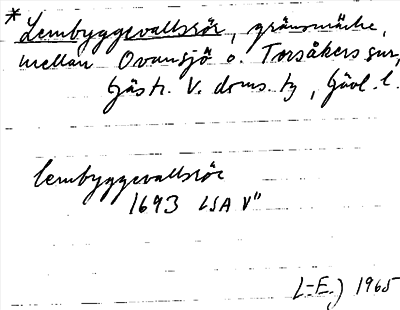 * Lembyggevallsrör, gränsmärke,
mellan Ovansjö o. Torsåkers snr,
Gästr. V. doms. tg, Gävl. l.
lembyggevallsrör
1693 LSA V"
L-E.J 1965